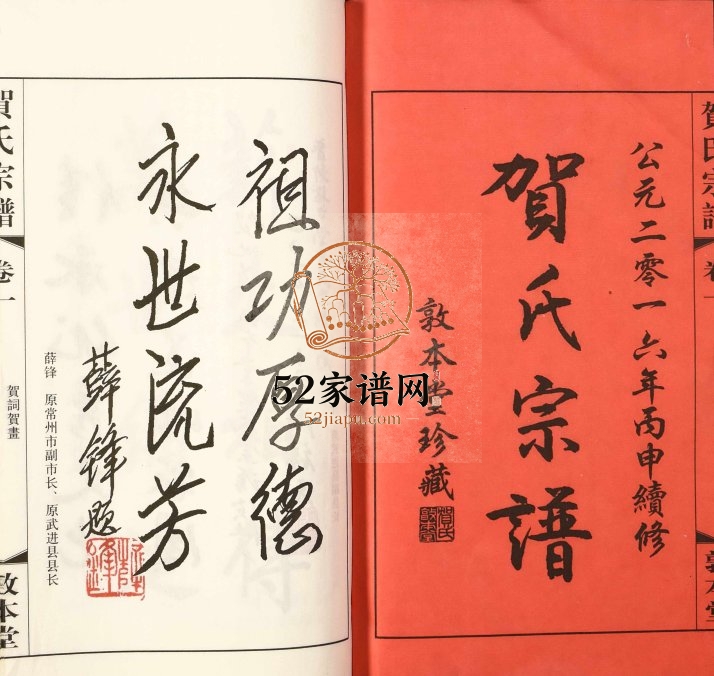 公元二零一六年丙申續修
賀氏宗譜
敦本堂珍藏
賀氏宗譜
卷一
敦本堂
祖功厚德
永世流芳
薛锋题
薛锋 原常州市副市长、原武进县县长
賀氏宗譜
卷一
賀詞賀畫
敦本堂
52家谱网
52jiapu.com